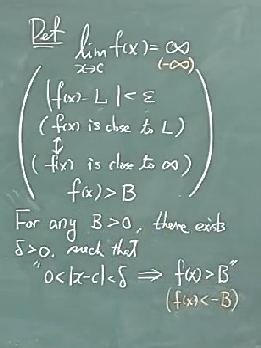 Def lim f(x) = ∞
x→c (-∞)
|f(x) - L| < ε
(f(x) is close to L)
↕
(f(x) is close to ∞)
f(x) > B
For any B>0, there exists
δ>0, such that
"0<|x-c|<δ ⇒ f(x)>B"
(f(x)<-B)